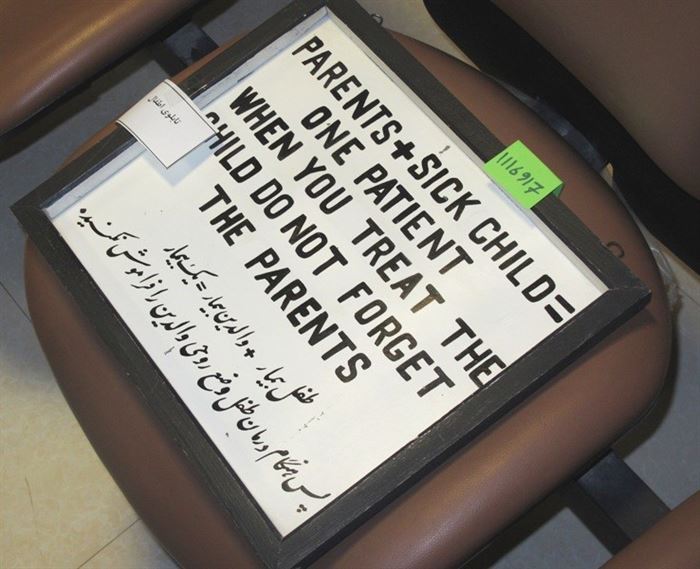 PARENTS + SICK CHILD =
ONE PATIENT
WHEN YOU TREAT THE
CHILD DO NOT FORGET
THE PARENTS
طفل بیمار + والدین بیمار = یک بیمار
پس هنگام درمان طفل وضع روحی والدین را فراموش نکنید.
تابلوی اطفال
1116917